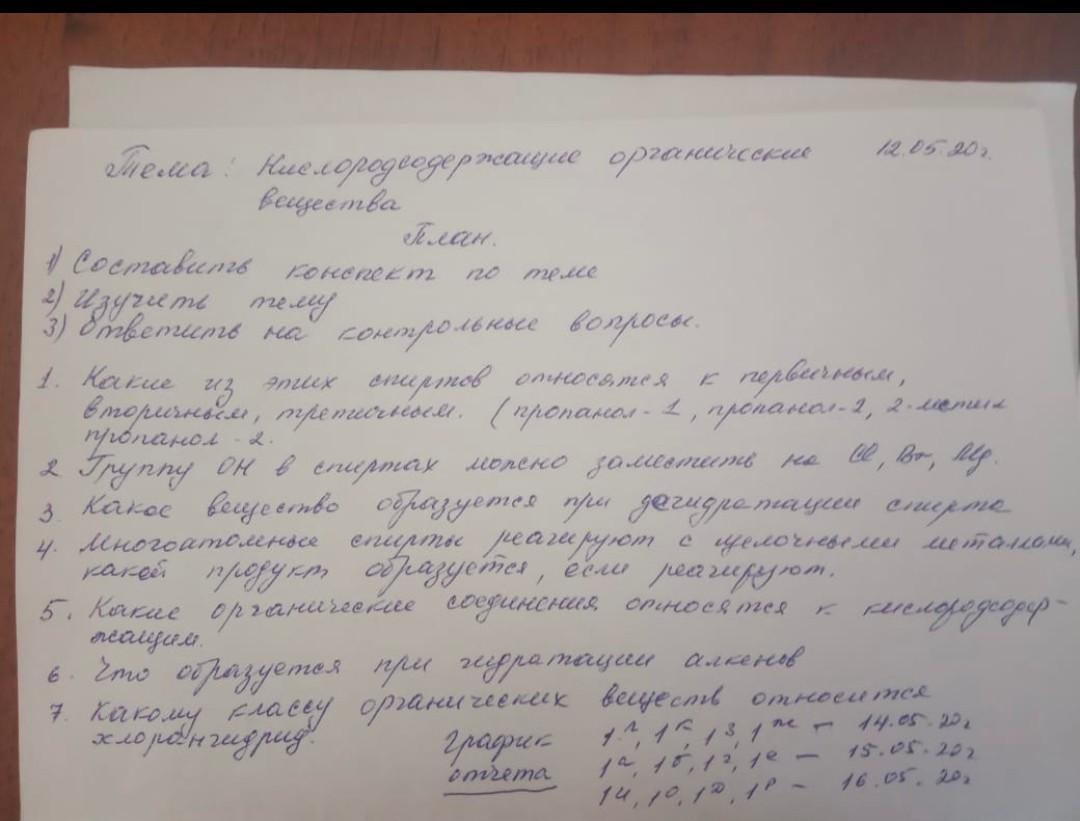 Тема: Кислородсодержащие органические 12.05.20г.
вещества
План.
1) Составить конспект по теме
2) Изучить тему
3) Ответить на контрольные вопросы.
1. Какие из этих спиртов относятся к первичным,
вторичным, третичным. (пропанол-1, пропанол-2, 2-метил
пропанол-2.
2 Группу ОН в спиртах можно заместить на Cl, Br, Mg.
3. Какое вещество образуется при дегидратации спирта
4. Многоатомные спирты реагируют с щелочными металлами,
какой продукт образуется, если реагируют.
5. Какие органические соединения относятся к кислородсодер-
жащим.
6. Что образуется при гидратации алкенов
7. Какому классу органических веществ относится
хлорангидрид.
График 1л, 1к, 1з, 1ж - 14.05.20г
отчета 1а, 1б, 1г, 1е - 15.05.20г
1и, 1о, 1р - 16.05.20г